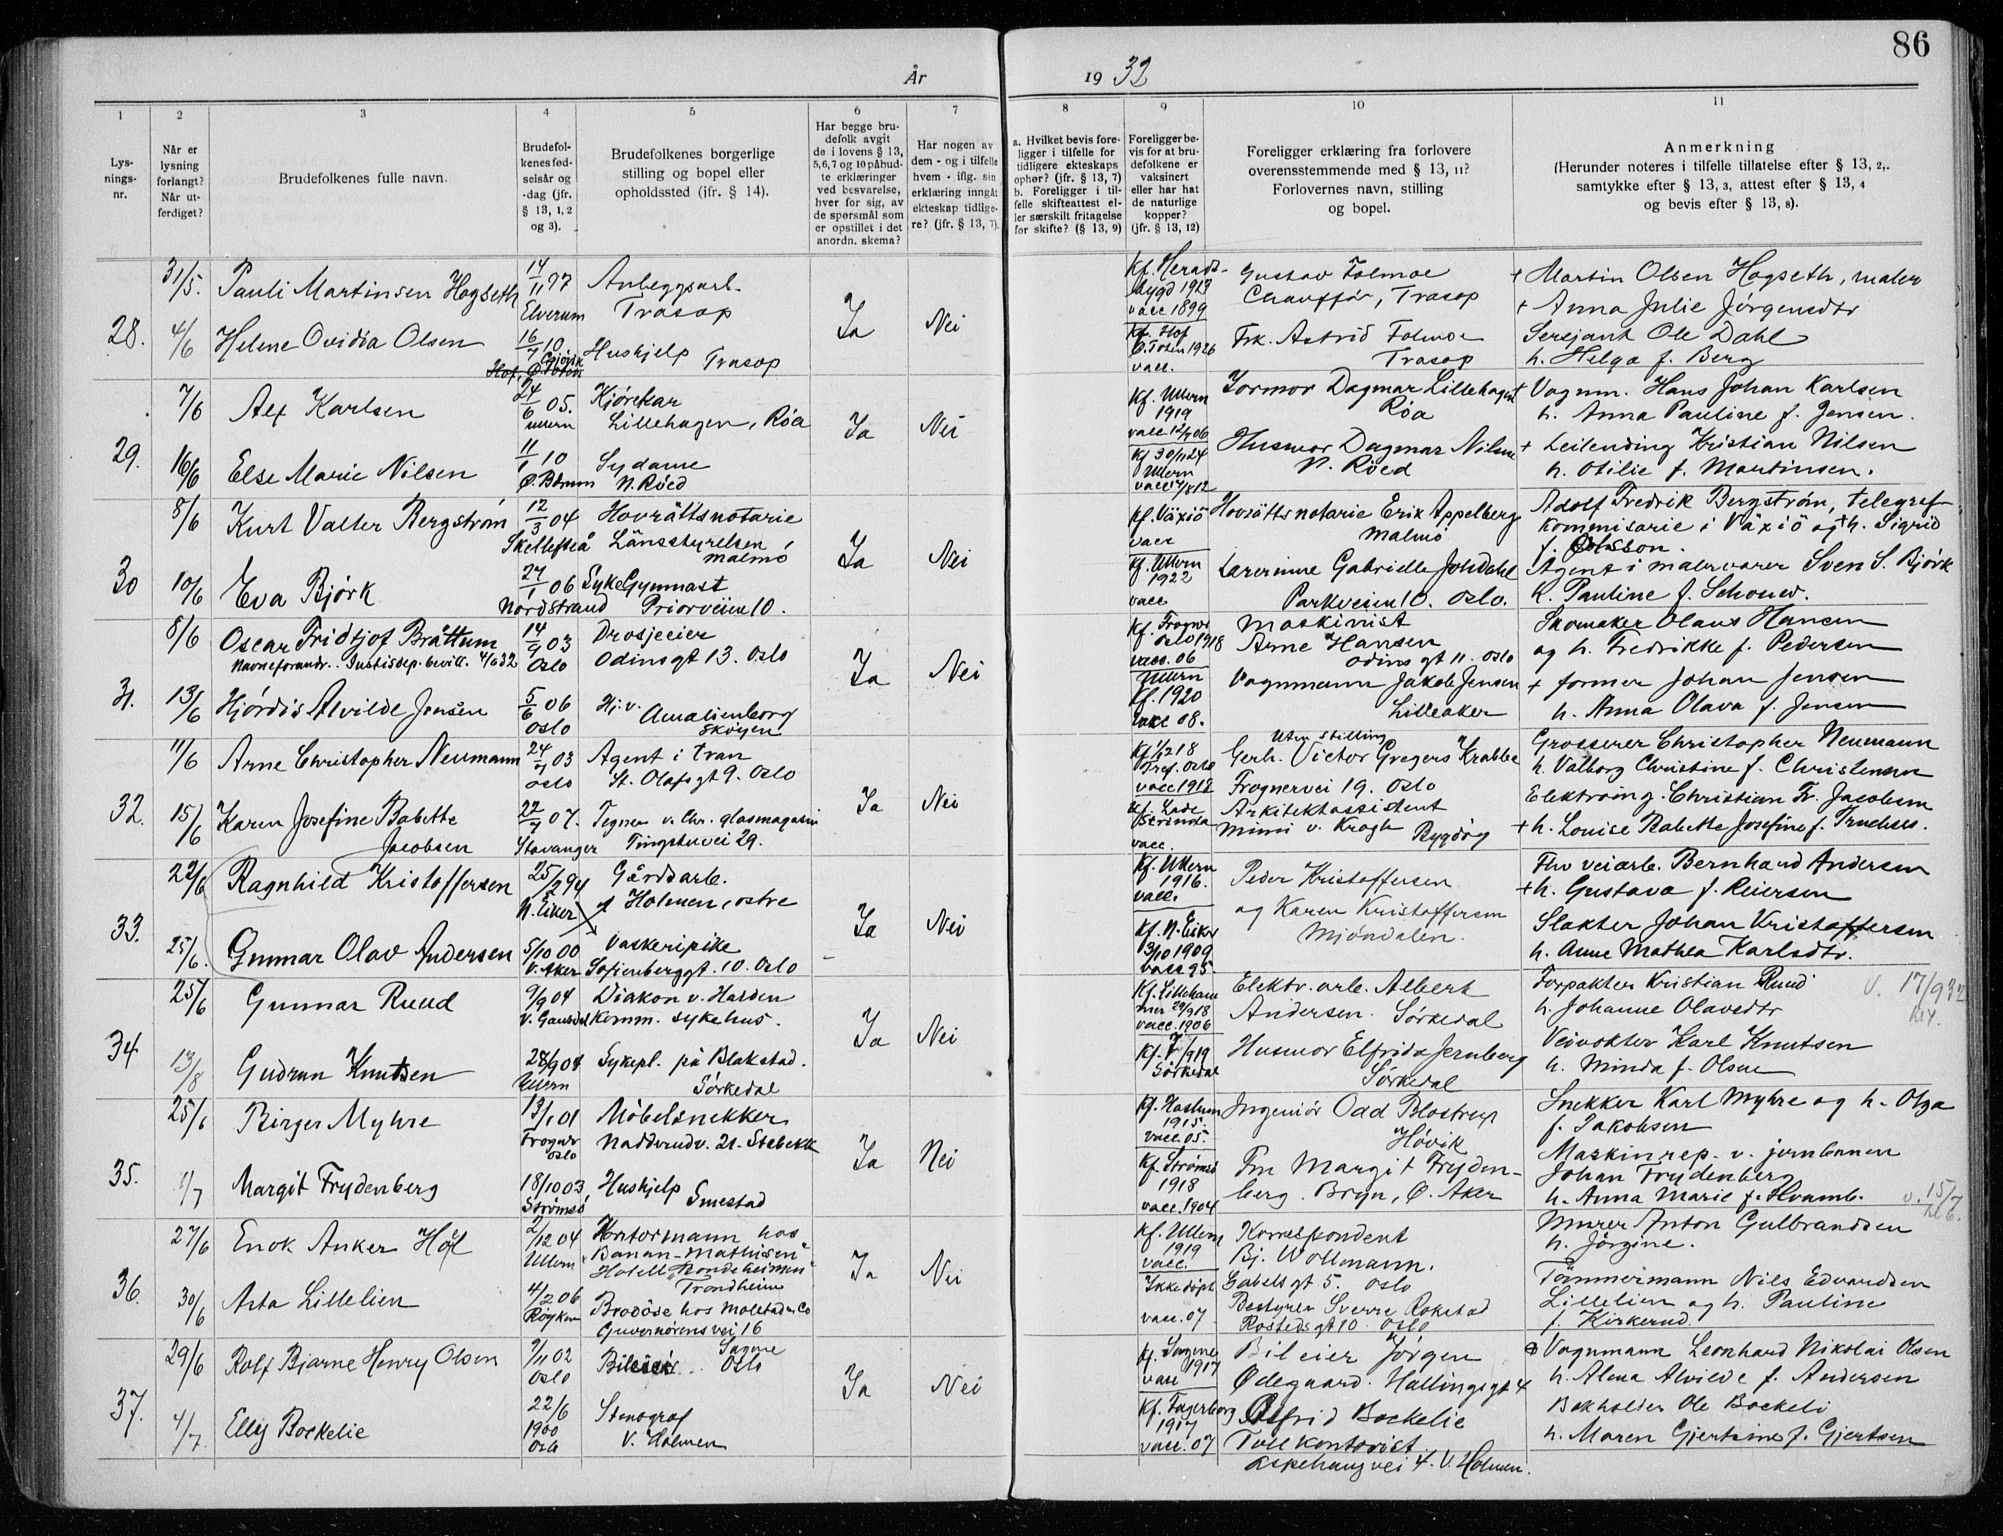 86
År 1932
1
2
3
4
5
6
7
8
9
10
11
Lys-
nings-
nr.
Når er
lysning
forlangt?
Når ut-
ferdiget?
Brudefolkenes fulle navn.
Brudefol-
kenes fød-
selsår og
-dag (jfr.
§ 13, 1, 2
og 3).
Brudefolkenes borgerlige
stilling og bopel eller
opholdssted (jfr. § 14).
Har begge bru-
defolk avgit
de i lovens § 13,
5,6,7 og 10 påbud-
te erklæringer
ved besvarelse,
hver for sig, av
de spørsmål som
er opstillet i det
anordn. skema?
Har nogen av
dem - og i tilfelle
hvem - iflg. sin
erklæring inngått
ekteskap tidlige-
re? (jfr. § 13, 7).
a. Hvilket bevis fore-
ligger i tilfelle for
tidligere ekteskaps
ophør? (jfr. § 13, 7)
b. Foreligger i til-
felle skifteattest el-
ler særskilt fritagelse
for skifte? (§ 13, 9)
Foreligger be-
vis for at bru-
defolkene er
vaksinert
eller har hat
de naturlige
kopper?
(jfr. § 13, 12)
Foreligger erklæring fra forlovere
overensstemmende med § 13, 11?
Forlovernes navn, stilling
og bopel.
Anmerkning
(Herunder noteres i tilfelle tillatelse efter § 13, 2,
samtykke efter § 13, 3, attest efter § 13, 4
og bevis efter § 13, 8).
28.
31/5.
Pauli Martinsen Hogseth
14/11 97
Elverum
Anleggsarb.
Trasop
Ja
Nei
Kf. Herads-
bygd 1913
vacc 1899
Gustav Folmoe
Chauffør, Trasop
+ Martin Olsen Hogseth, maler
+ Anna Julie Jørgensdtr
4/6
Helene Ovidia Olsen
16/7 10
Gjøvik
Hof, Ø. Toten
Hushjelp
Trasop
Kf. Hof
Ø. Toten 1926
vacc.
Frk. Astrid Folmoe
Trasop
Sersjant Ole Dahl
h. Helga f. Berg
29.
7/6
Alf Karlsen
24/6 05.
Ullern
Kjørekar
Lillehagen, Røa
Ja
Nei
Kf. Ullern
1919
vacc 12/9 06
Jormor Dagmar Lillehagen
Røa
+ Vognm. Hans Johan Karlsen
h. Anna Pauline f. Jensen.
16/6
Else Marie Nilsen
11/1 10
Ø. Bærum
Sydame
N. Røed
Kf 30/11 24
Ullern
Husmor Dagmar Nilsen
N. Røed
+ Leilending Kristian Nilsen
h. Otilie f. Martinsen.
30
8/6
Kurt Valter Bergstrøm
12/3 04
Skellefteå
Hovrättsnotarie
Länsstyrelsen
Malmö
Ja
Nei
Kf. Växiö
vacc
Hovrättsnotarie Erik Appelberg
Malmö
Adolf Fredrik Bergstrøm, telegraf-
kommisarie i Växiö og h. Sigrid
f. Olsson.
10/6
Eva Bjørk
27/1 06
Nordstrand
SykeGymnast
Priorveien 10.
Kf. Ullern
1922
vacc
Lærerinne Gabrielle Johdahl
Parkveien 10. Oslo.
Agent i malervarer Sven S. Bjørk
h. Pauline f. Schouw.
31.
8/6
Oscar Fridtjof Bråttum
Navneforandr. Justisdep. bevill. 4/6 32
14/9 03
Oslo
Drosjeeier
Odinsgt 13. Oslo
Ja
Nei
Kf. Frogner
Oslo 1918
vacc. 06
Maskinist
Arne Hansen
Odinsgt 11. Oslo
Skomaker Olaus Hansen
og h. Fredrikke f. Pedersen
13/6
Hjørdis Alvilde Jensen
5/6 06
Oslo
Hj. v.
Amalienborg
Skøyen
Ullern
Kf. 1920
vacc 08.
Vognmann Jakob Jensen
Lilleaker
+ former Johan Jensen
h. Anna Olava f. Jensen
32.
11/6
Arne Christopher Neumann
24/7 03
Oslo
Agent i tran
St. Olafsgt 9. Oslo
Ja
Nei
Kf. 1/2 18
Tref. Oslo
vacc 1918
Uten stilling
Gerh. Victor Gregers Krabbe
Frognervei 19. Oslo
Grosserer Christopher Neumann
h. Valborg Christine f. Christensen
15/6
Karen Josefine Babette
Jacobsen
22/7 07.
Stavanger
Tegner v. Chr. glasmagasin
Tingstuvei 29.
Kf. Lade
Strinda
vacc.
Arkitektassistent
Mimi v. Krogh Bygdøy
Elektroing. Christian Fr. Jacobsen
+ h. Louise Babette Josefine f. Truchses.
33.
22/6
Ragnhild Kristoffersen
25/2 94
N. Eiker
Gårdsarb.
Holmen, østre
Ja
Nei
Kf. Ullern
1916.
vacc.
Peder Kristoffersen
og Karen Kristoffersen
Mjøndalen.
Fhv veiarb. Bernhard Andersen
+ h. Gustava f. Reiersen
25/6.
Gunnar Olav Andersen
5/10 00
V. Aker
Vaskeripike
Sofienberggt. 10. Oslo
Kf. N. Eiker
3/10 1909
vacc 95
Slakter Johan Kristoffersen
h. Anne Mathea Karlsdtr.
34
25/6
Gunnar Ruud
9/9 04
V. Gausdal
Diakon v. Halden
Komm. sykehus.
Ja
Nei
Kf. Lilleham
mer 29/9 18
vacc. 1906
Elektr. arb. Albert
Andersen. Sørkedal
Forpakter Kristian Ruud
h. Johanne Olavsdtr
v. 17/9 32
13/8
Gudrun Knutsen
28/9 04
Ullern
Sykepl. på Blakstad.
Sørkedal
Sørkedal
Husmor Elfrida Jernberg
Sørkedal
Veivokter Karl Knutsen
h. Minda f. Olsen
35.
25/6
Birger Myhre
13/1 01
Frogner
Oslo
Møbelsnekker
Nadderudv. 21. Stabekk
Ja
Nei
Kf. Haslum
1915.
vacc. 05.
Ingeniør Odd Blostrup
Høvik
Snekker Karl Myhre og h. Olga
f. Jakobsen
1/7
Margit Frydenberg
18/10 03
Strømsø
Hushjelp
Smestad
Kf. Strømsø
1918
vacc. 1904
Fru Margit Fryden-
berg. Bryn, Ø. Aker
Maskinrep. v. jernbanen
Johan Frydenberg
h. Anna Marie f. Hvamb.
v. 15/7
36.
27/6
Enok Anker Høl
2/12 04
Ullern
Kontormann hos
"Banan-Mathisen"
Hotell "Trondheimen"
Trondheim
Ja
Nei
Kf. Ullern
1919
vacc.
Korrespondent
Bj. Wollmann.
Gabelsgt 5. Oslo
Murer Anton Gulbrandsen
h. Jørgine.
30/6
Asta Lillelien
4/2 06
Røyken
Brodøse hos Molstad & Co
Guvernørensvei 16
Ikke døpt
vacc. 07
Bestyrer Sverre Rokstad
Rostedsgt 10. Oslo
Tømmermann Nils Edvardsen
Lillelien og h. Pauline
f. Kirkerud.
37.
29/6
Rolf Bjarne Henry Olsen
9/11 02
Oslo
Sagene
Bileier. Oslo
Ja
Nei
Kf. Sagene
1917
vacc
Bileier Jørgen
Ødegaard. Hallingsgt 4
Vognmann Leonhard Nikolai Olsen
h. Alma Alvilde f. Andersen
4/7
Elly Bockelie
22/6
1900
Oslo
Stenograf
V. Holmen
Kf. Fagerborg
1917
vacc. 07
Alfrid Bockelie
Tollkontorist
Aspehaugvei 4. V. Holmen.
Bokholder Ole Bockeli
h. Maren Gjertine f. Gjertsen